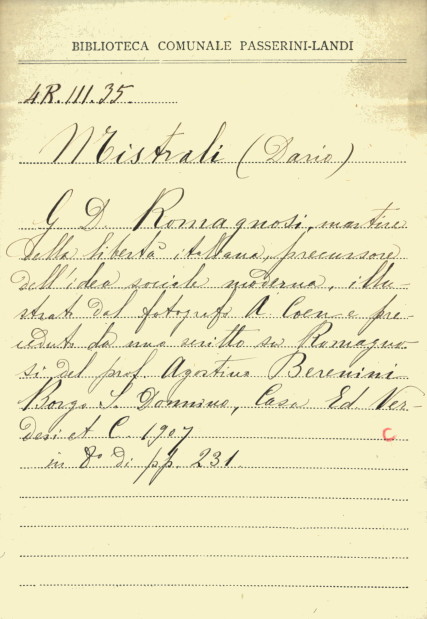 BIBLIOTECA COMUNALE PASSERINI-LANDI
4R.III.35.
Mistrali (Dario)
G D. Romagnosi, martire
della libertà italiana, precursore
dell'idea sociale moderna, illu-
strato dal fotografo A Coen e pre-
ceduto da uno scritto su Romagno-
si del prof. Agostino Berenini
Borgo S. Donnino, Casa Ed Ver-
desi et C. 1907
C
in 8° di pp. 231.